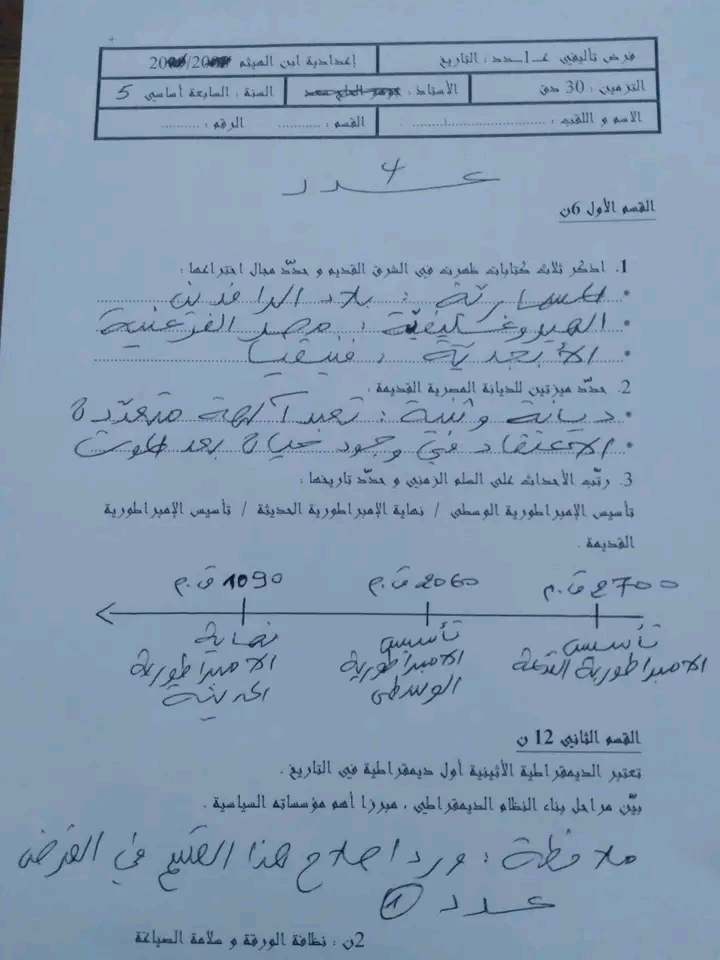 فرض تأليفي عـ1ـدد : التاريخ إعدادية ابن الهيثم
التزمين : 30 دق الأستاذ : السنة : السابعة أساسي 5
الاسم و اللقب : .............................. القسم : ........... الرقم : ..........
عـــدد 4
القسم الأول 6ن
1. اذكر ثلاث كتابات ظهرت في الشرق القديم و حدّد مجال اختراعها :
• المسمارية : بلاد الرافدين
• الهيروغليفية : مصر الفرعونية
• الأبجدية : فينيقيا
2. حدّد ميزتين للديانة المصرية القديمة :
• ديانة وثنية : تعبد آلهة متعدّدة
• الاعتقاد في وجود حياة بعد الموت
3. رتّب الأحداث على السلم الزمني و حدّد تاريخها :
تأسيس الإمبراطورية الوسطى / نهاية الإمبراطورية الحديثة / تأسيس الإمبراطورية
القديمة .
2700 ق.م 2060 ق.م 1090 ق.م
تأسيس الامبراطورية القديمة
تأسيس الامبراطورية الوسطى
نهاية الامبراطورية الحديثة
القسم الثاني 12 ن
تعتبر الديمقراطية الأثينية أول ديمقراطية في التاريخ .
بيّن مراحل بناء النظام الديمقراطي ، مبرزا أهم مؤسساته السياسية .
ملاحظة : ورد اصلاح هذا القسم في الفرض
عـــدد 1
2ن : نظافة الورقة و سلامة الصياغة